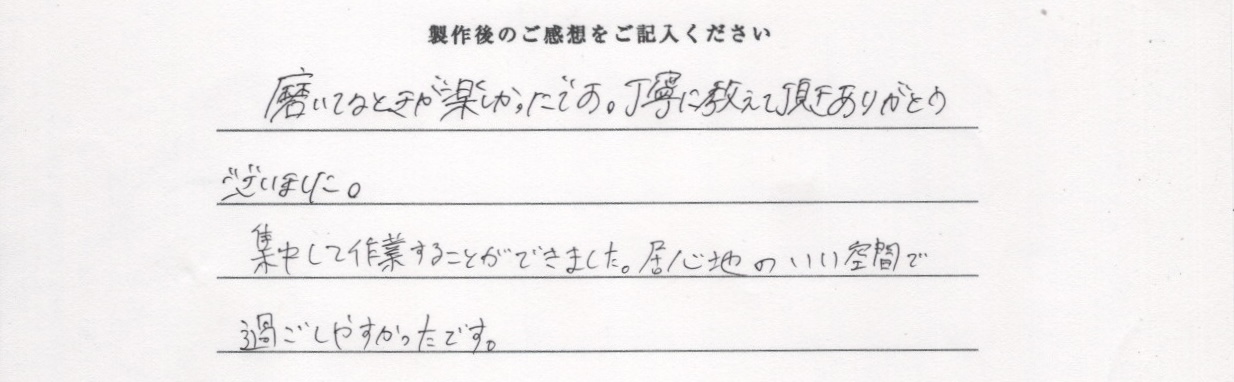 製作後のご感想をご記入ください
磨いてるときが楽しかったです。丁寧に教えて頂きありがとう
ございました。
集中して作業することができました。居心地のいい空間で
過ごしやすかったです。